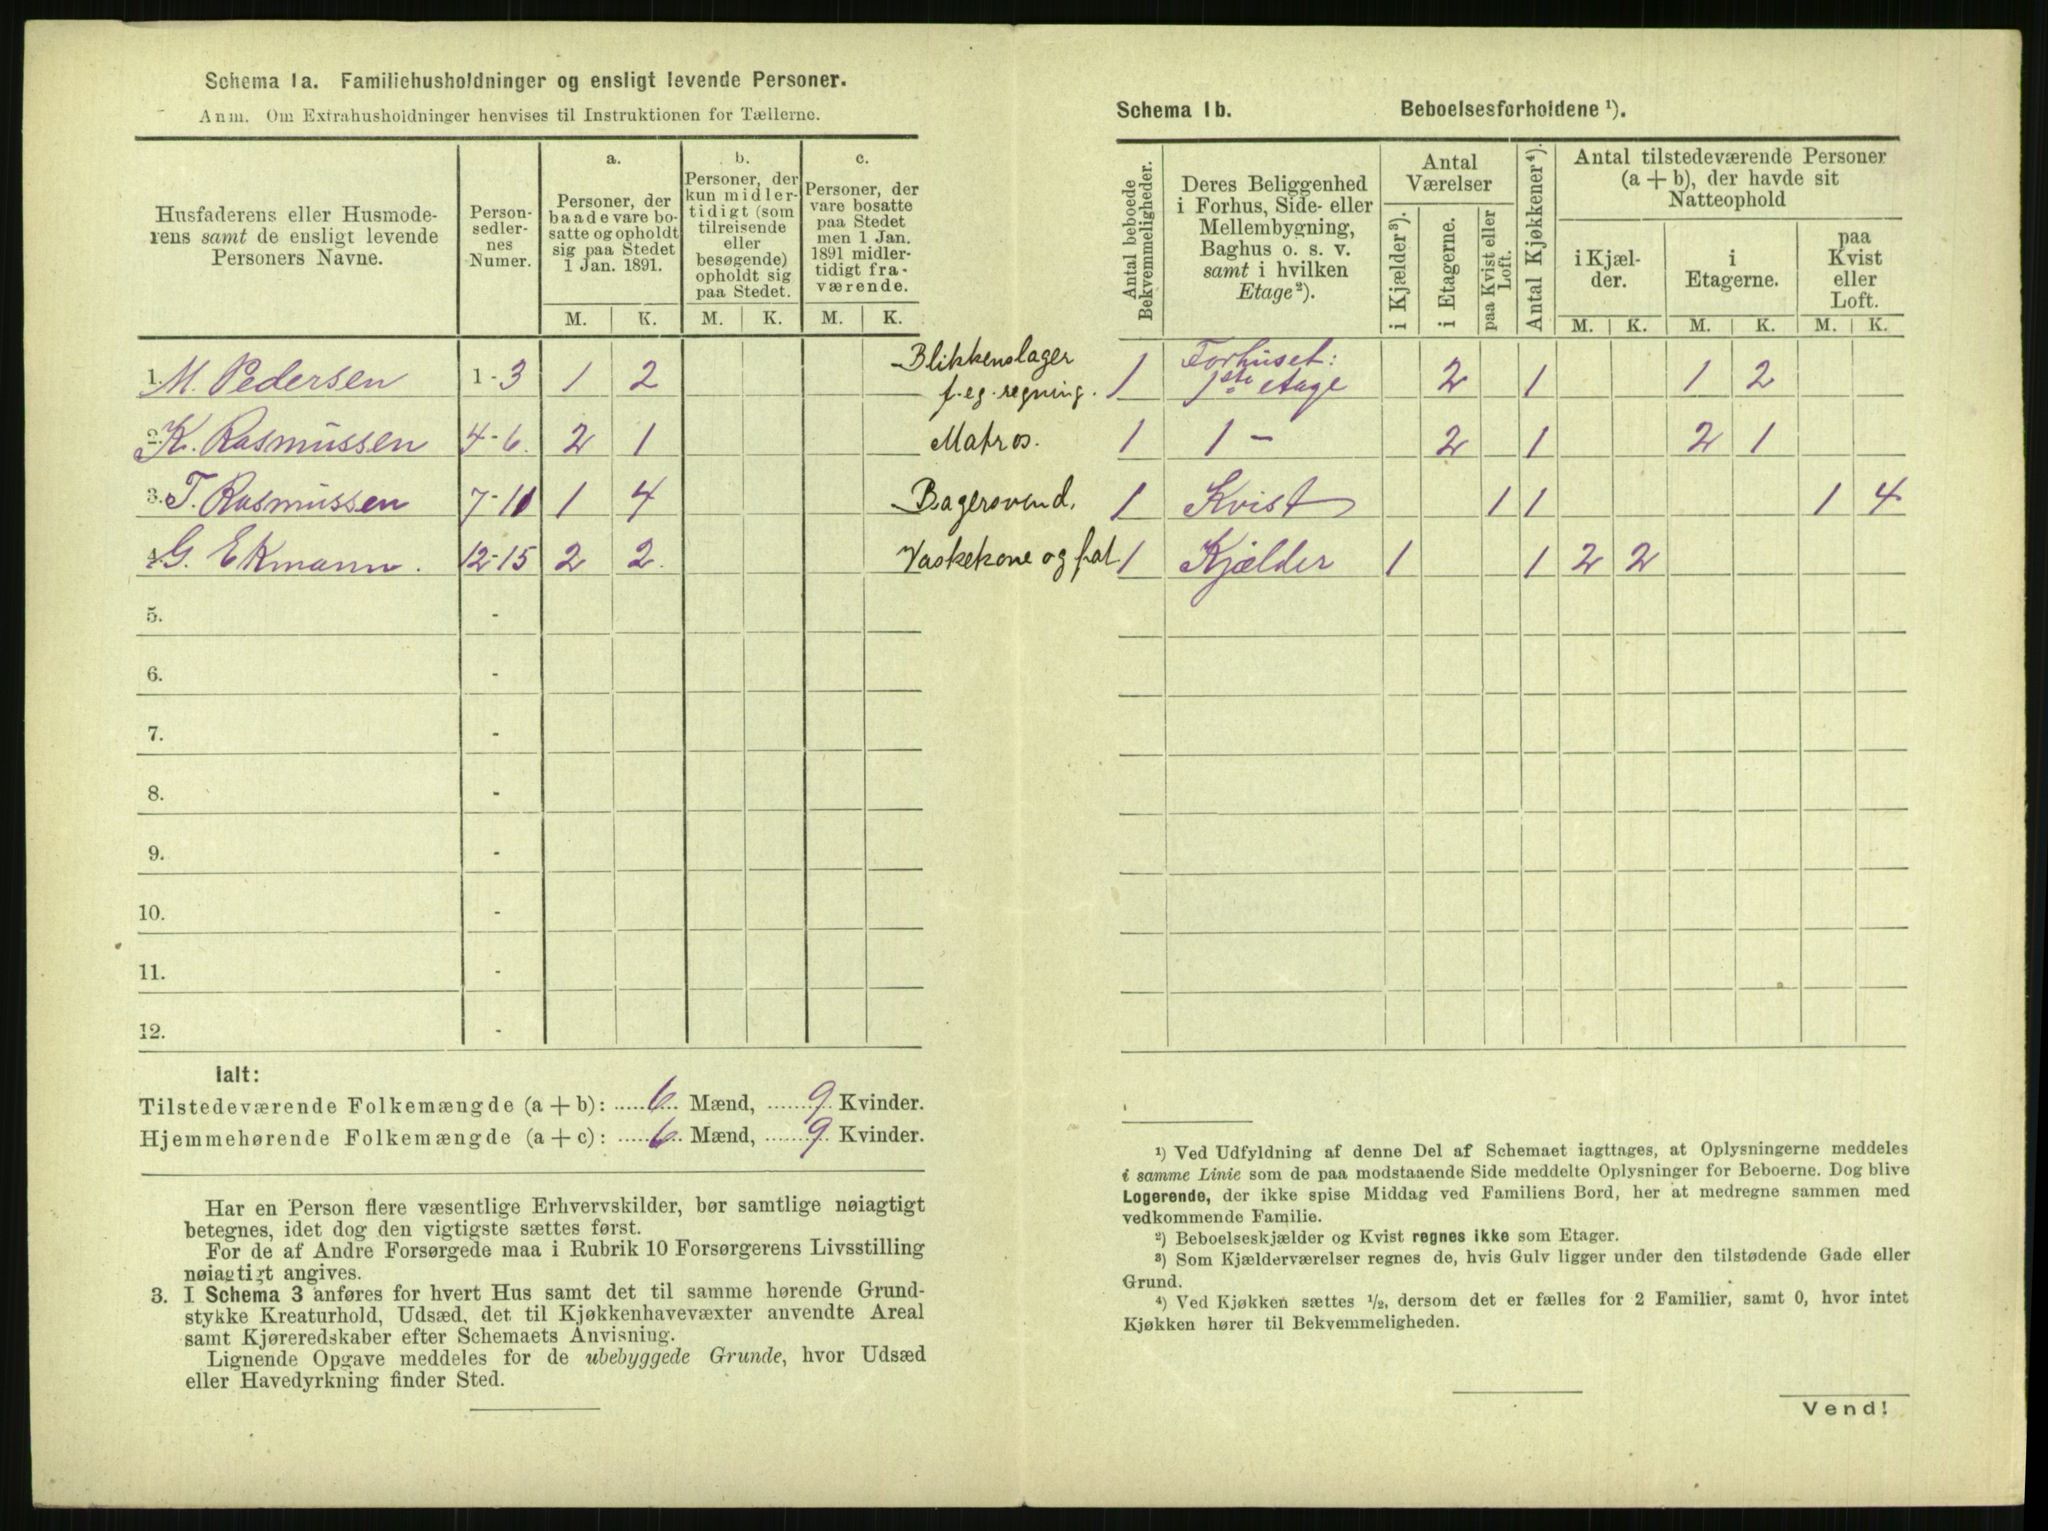 Schema 1a. Familiehusholdninger og ensligt levende Personer.
Anm. Om Extrahusholdninger henvises til Instruktionen for Tællerne.
Husfaderens eller Husmode-
rens samt de ensligt levende
Personers Navne.
Person-
sedler-
nes
Numer.
a.
Personer, der
baade vare bo-
satte og opholdt
sig paa Stedet
1 Jan. 1891.
b.
Personer, der
kun midler-
tidigt (som
tilreisende
eller
besøgende)
opholdt sig
paa Stedet.
c.
Personer, der
vare bosatte
paa Stedet
men 1 Jan.
1891 midler-
tidigt fra-
værende.
M. K. M. K. M. K.
1. M. Pedersen 1-3 1 2 Blikkenslager
f. eg. regning.
2. K. Rasmussen 4-6. 2 1 Matros.
3. T. Rasmussen 7-11 1 4 Bagersvend.
4. G. Ekmann. 12-15 2 2. Vaskekone og fat.
5. -
6. -
7. -
8. -
9. -
10. -
11. -
12. -
Ialt:
Tilstedeværende Folkemængde (a + b): 6 Mænd, 9 Kvinder.
Hjemmehørende Folkemængde (a + c): 6 Mænd, 9 Kvinder.
Har en Person flere væsentlige Erhvervskilder, bør samtlige nøiagtigt
betegnes, idet dog den vigtigste sættes først.
For de af Andre Forsørgede maa i Rubrik 10 Forsørgerens Livsstilling
nøiagtigt angives.
3. I Schema 3 anføres for hvert Hus samt det til samme hørende Grund-
stykke Kreaturhold, Udsæd, det til Kjøkkenhavevæxter anvendte Areal
samt Kjøreredskaber efter Schemaets Anvisning.
Lignende Opgave meddeles for de ubebyggede Grunde, hvor Udsæd
eller Havedyrkning finder Sted.
Schema 1b. Beboelsesforholdene ¹).
Antal beboede
Bekvemmeligheder.
Deres Beliggenhed
i Forhus, Side- eller
Mellembygning,
Baghus o. s. v.
samt i hvilken
Etage²).
Antal
Værelser
i Kjælder³).
i Etagerne.
paa Kvist eller
Loft.
Antal Kjøkkener⁴).
Antal tilstedeværende Personer
(a + b), der havde sit
Natteophold
i Kjæl-
der.
i
Etagerne.
paa
Kvist
eller
Loft.
M. K. M. K. M. K.
1 Forhuset:
1ste etage 2 1 1 2
1 1 - 2 1 2 1
1 Kvist 1 1 1 4
1 Kjælder 1 1 2 2
¹) Ved Udfyldning af denne Del af Schemaet iagttages, at Oplysningerne meddeles
i samme Linie som de paa modstaaende Side meddelte Oplysninger for Beboerne. Dog blive
Logerende, der ikke spise Middag ved Familiens Bord, her at medregne sammen med
vedkommende Familie.
²) Beboelseskjælder og Kvist regnes ikke som Etager.
³) Som Kjælderværelser regnes de, hvis Gulv ligger under den tilstødende Gade eller
Grund.
⁴) Ved Kjøkken sættes ½, dersom det er fælles for 2 Familier, samt 0, hvor intet
Kjøkken hører til Bekvemmeligheden.
Vend!